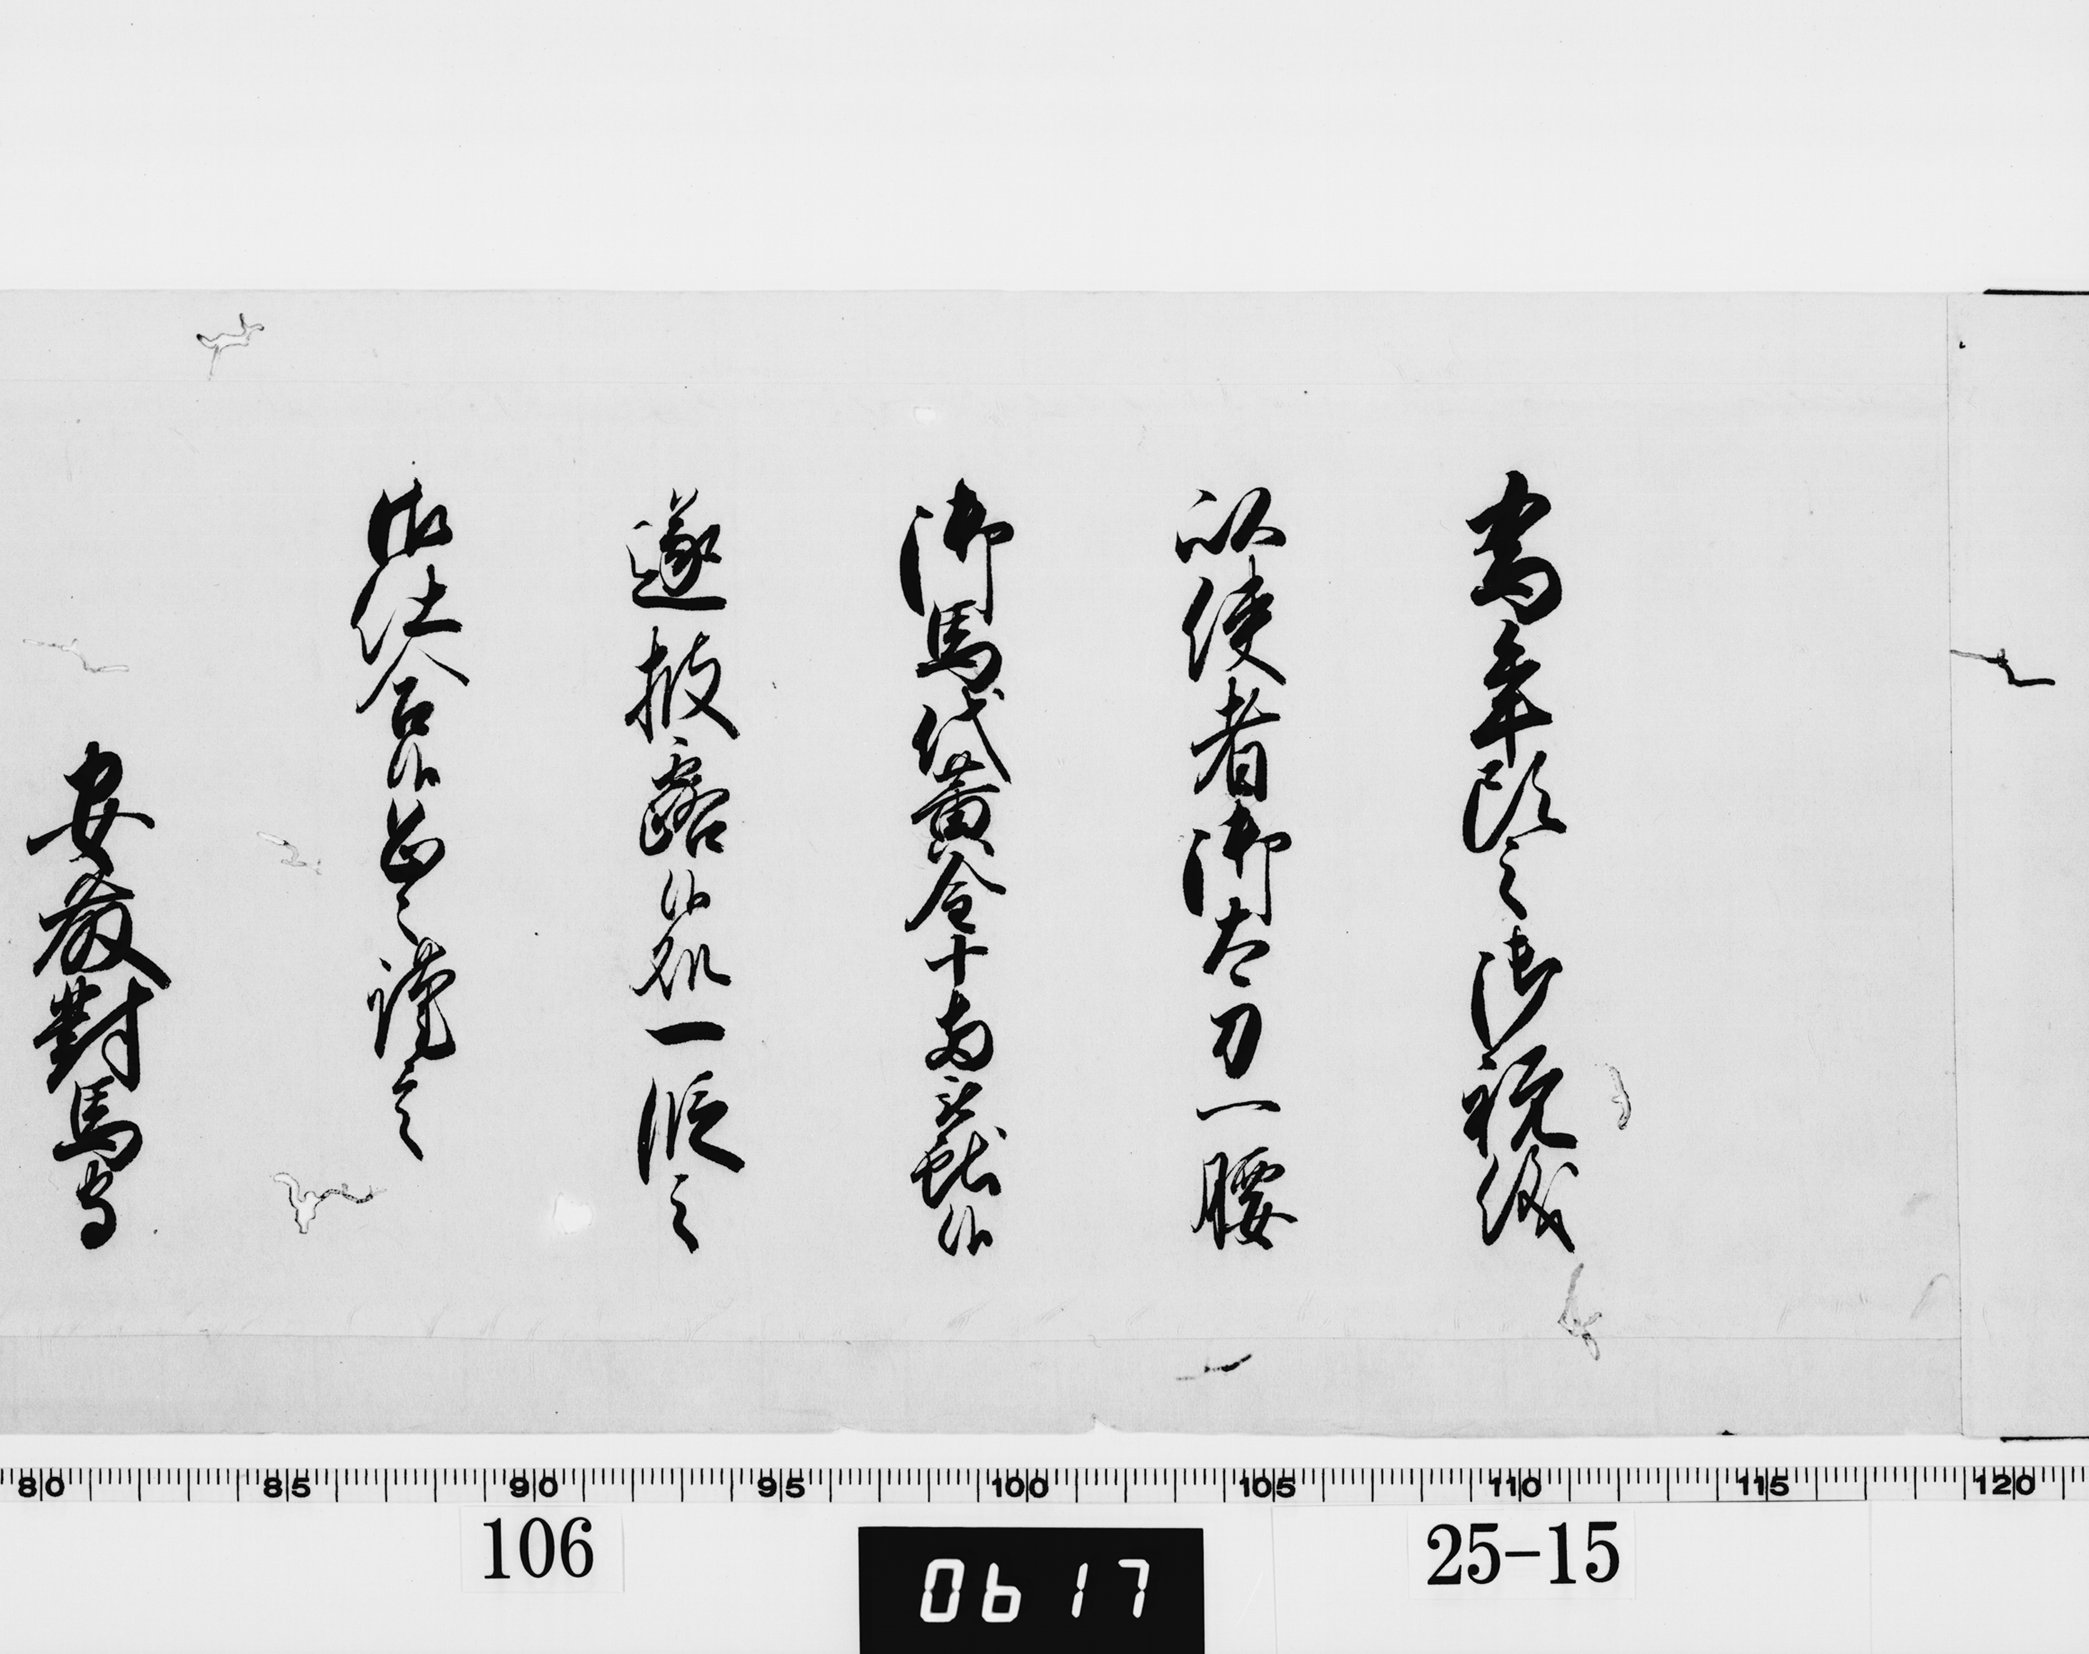 為年頭之御祝儀
以使者御太刀一腰
御馬代黄金十両被獻候
遂披露候処一段之
御仕合候恐々謹言
安藤對馬守
80 85 90 95 100 105 110 115 120
106
0617
25-15